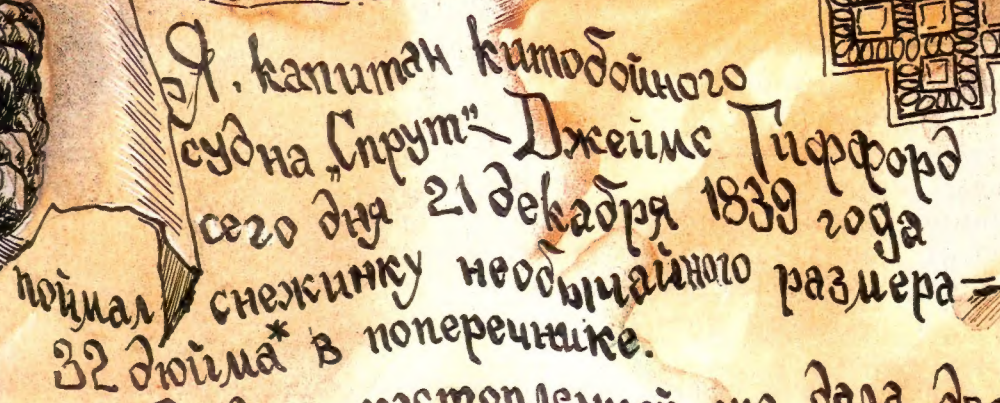 Я, капитан китобойного
судна „Спрут“ – Джеймс Гиффорд
сего дня 21 декабря 1839 года
поймал снежинку необычайного размера –
32 дюйма* в поперечнике.
дала